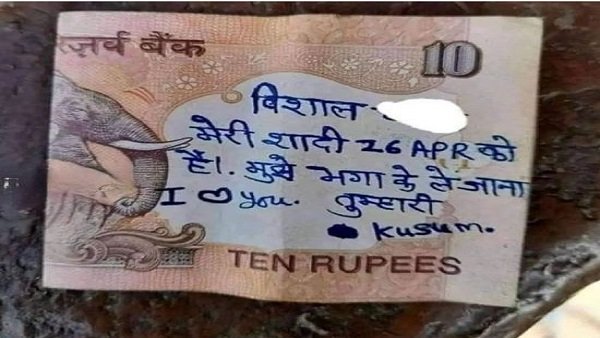 रज़र्व बैंक 10
विशाल
मेरी शादी 26 APR को
है। मुझे भगा के ले जाना
I ♡ you. तुम्हारी
Kusum.
TEN RUPEES